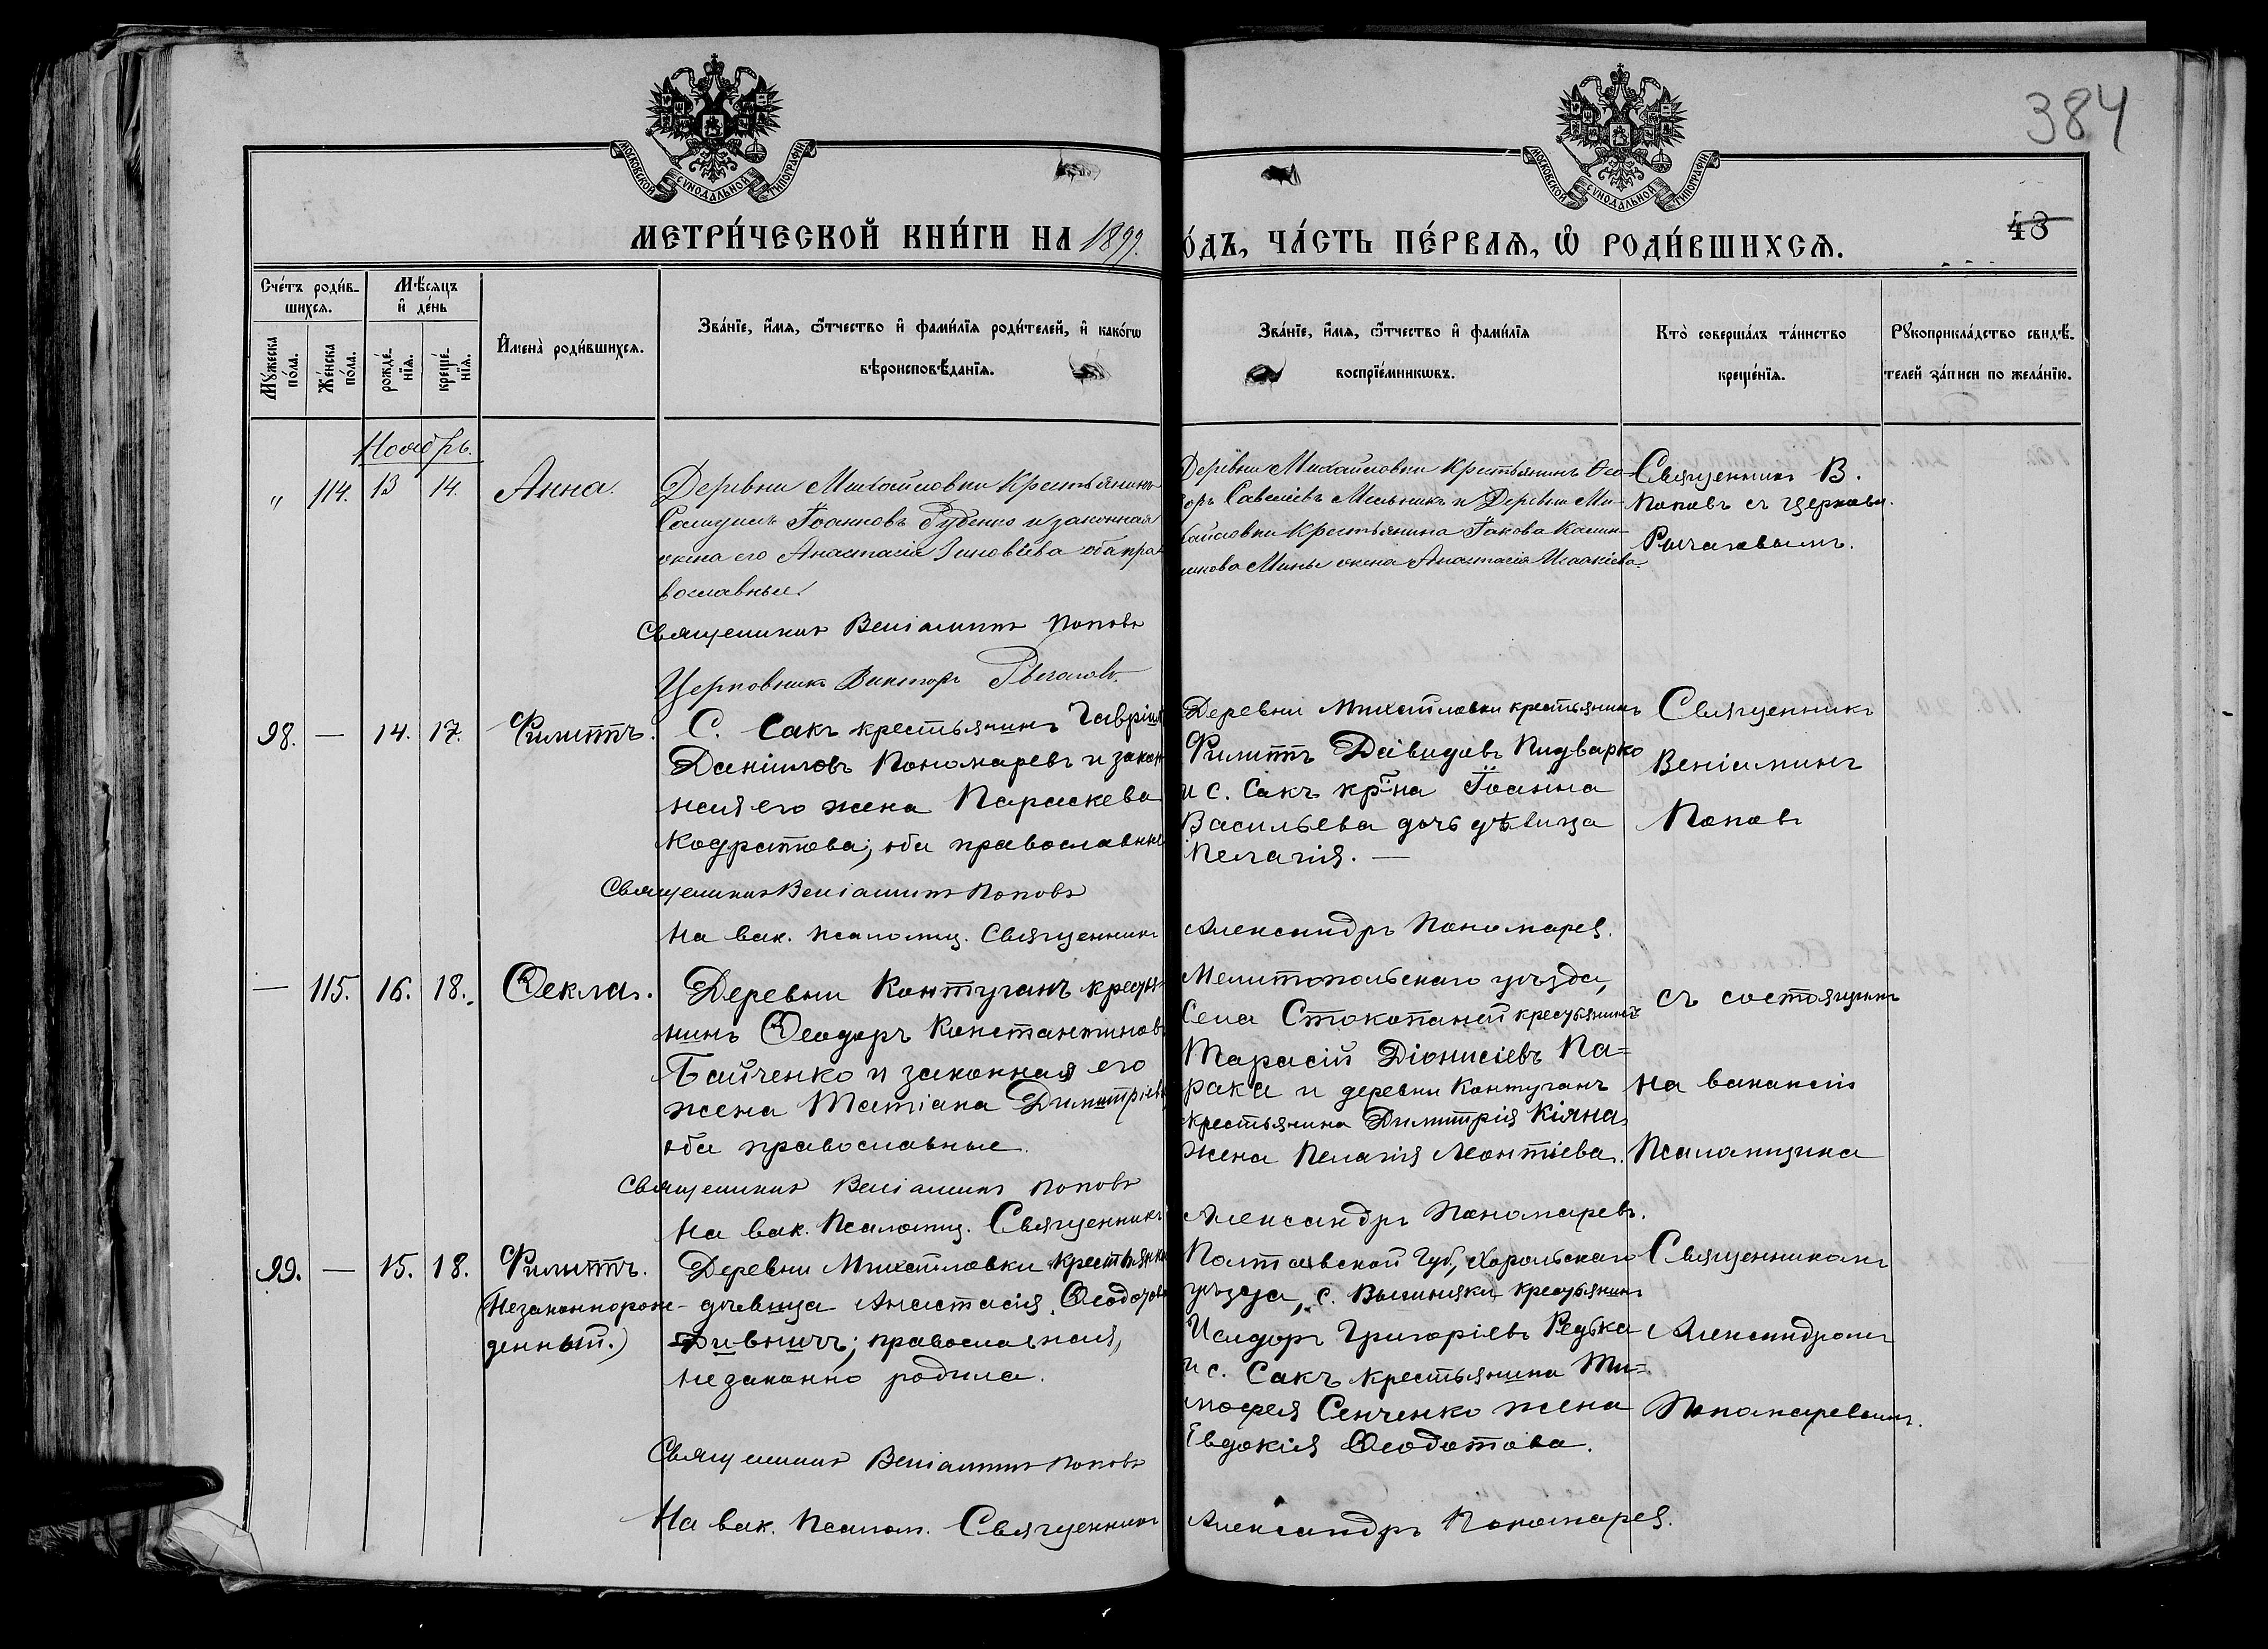 384
МОСКОВСКОЙ СѴНОДАЛЬНОЙ ТИПОГРАФІИ
МОСКОВСКОЙ СѴНОДАЛЬНОЙ ТИПОГРАФІИ
43
МЕТРИ́ЧЕСКОЙ КНИ́ГИ НА 1899. ОДЪ, ЧА́СТЬ ПЕ́РВАЯ, Ѡ РОДИ́ВШИХСЯ.
Сче́тъ роди́в-
шихся.
Му́жеска по́ла.
Же́нска по́ла.
Мѣ́сяцъ
и де́нь
рожде́-
нїя.
креще́-
нїя.
Имена̀ роди́вшихся.
Зва́нїе, и́мя, ѻ́тчество и фами́лїя роди́телей, и како́гѡ
вѣроисповѣ́данїя.
Зва́нїе, и́мя, ѻ́тчество и фами́лїя
воспрїе́мникѡвъ.
Кто̀ соверша́лъ та́инство
креще́нїя.
Рꙋкоприкла́дство свидѣ́-
телей за́писи по жела́нїю.
Ноябрь.
" 114. 13 14. Анна.
Деревни Михайловки Крестьянинъ
Самуилъ Іоанновъ Руденко и законная
жена его Анастасія Зиновіева оба пра-
вославные.
Священникъ Веніаминъ Поповъ
Церковникъ Викторъ Рычаговъ.
Деревни Михайловки Крестьянинъ Ѳео-
доръ Савеліевъ Мельникъ и Деревни Ми-
хайловки Крестьянина Іакова Калин-
никова Мины жена Анастасія Исаакіева.
Священникъ В.
Поповъ съ церковн.
Рычаговымъ.
98. — 14. 17. Филиппъ.
С. Сакъ крестьянинъ Гавріилъ
Даніиловъ Пономаревъ и закон
ная его жена Параскева
Кодратова; оба православные
Священникъ Веніаминъ Поповъ
На вак. псаломщ. Священникъ Александръ Пономарев.
Деревни Михайловки крестьянинъ
Филиппъ Давидовъ Пидварко
и с. Сакъ кр-на Іоанна
Васильева дочь дѣвица
Пелагія. —
Священникъ
Веніаминъ
Поповъ
— 115. 16. 18. Ѳекла.
Деревни Контуганъ крестья
нинъ Ѳеодоръ Константиновъ
Байченко и законная его
жена Татіана Димитріева
оба православные.
Священникъ Веніаминъ Поповъ
На вак. Псаломщ. Священникъ Александръ Пономаревъ.
Мелитопольскаго уѣзда,
Села Стокопаней крестьянинъ
Тарасій Діонисіевъ Па=
рака и деревни Контуганъ
крестьянина Димитрія Кіяна
жена Пелагія Леонтіева.
съ состоящимъ
на вакансіи
Псаломщика
99. — 15. 18. Филиппъ.
(Незаконнорож-
денный.)
Деревни Михайловки крестьянка
дѣвица Анастасія Ѳеодотова
Дивничъ; православная,
незаконно родила.
Священникъ Веніаминъ Поповъ
На вак. Псалом. Священникъ Александръ Пономарев.
Полтавской Губ., Хорольскаго
уѣзда, с. Вышняки крестьянинъ
Исидоръ Григоріевъ Редька
и с. Сакъ крестьянина Ти=
мофея Сенченко жена
Евдокія Ѳеодотова.
Священникомъ
Александромъ
Пономаревымъ.